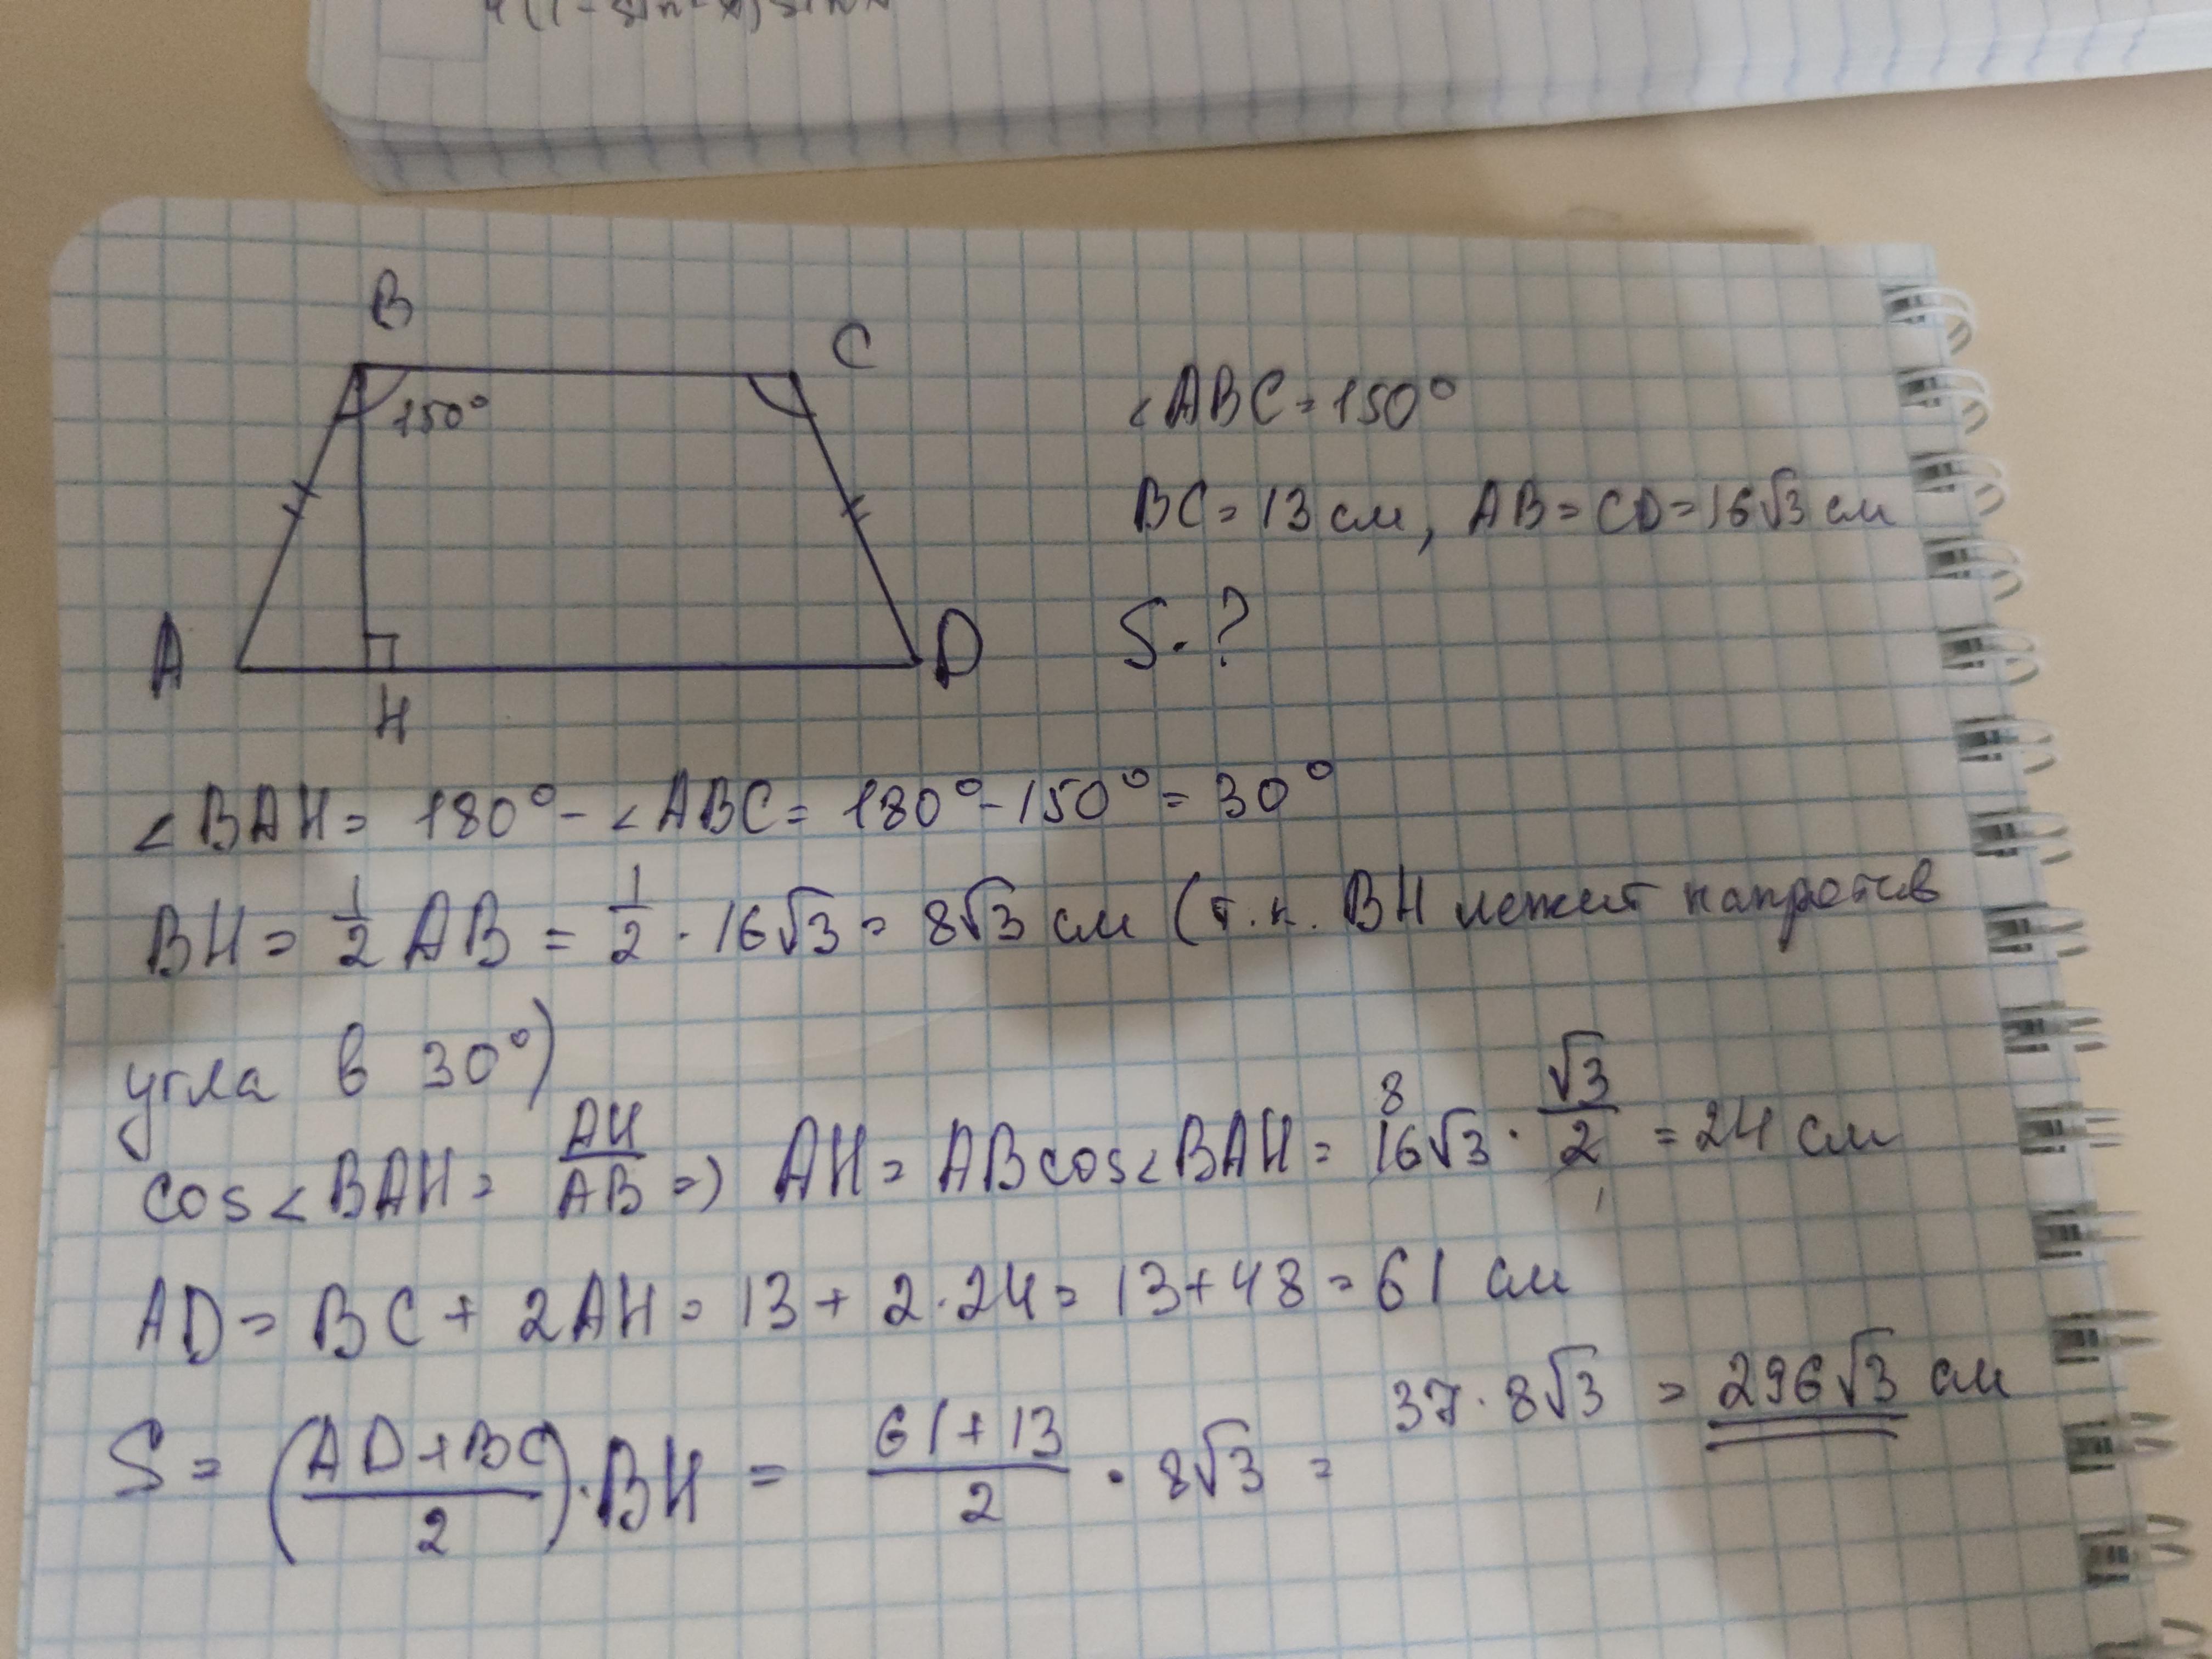 B
C
150°
A
D
H
∠ABC = 150°
BC = 13 см, AB = CD = 16√3 см
S - ?
∠BAH = 180° - ∠ABC = 180° - 150° = 30°
BH = 1/2 AB = 1/2 · 16√3 = 8√3 см (т.к. BH лежит напротив
угла в 30°)
cos∠BAH = AH/AB => AH = ABcos∠BAH = 8 16√3 · √3/2 1 = 24 см
AD = BC + 2AH = 13 + 2·24 = 13+48 = 61 см
S = (AD+BC/2)·BH = 61+13/2 · 8√3 = 37·8√3 = 296√3 см